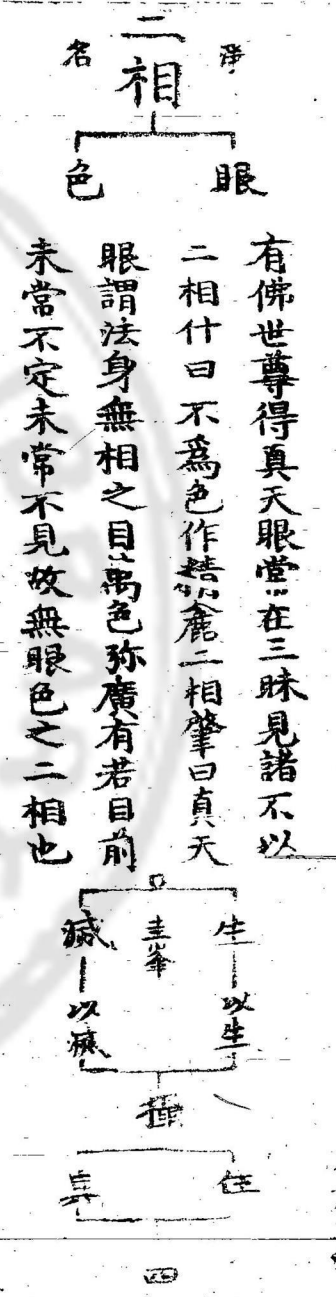 二相
淨
名
眼
色
有佛世尊得真天眼常在三昧見諸不以
二相什曰不為色作精麁二相肇曰真天
眼謂法身無相之目萬色弥廣有若目前
未常不定未常不見故無眼色之二相也
生
以生
圭峯
滅
以滅
住
四